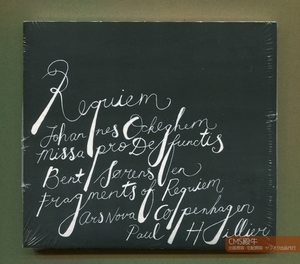 Requiem
Johannes Ockeghem
Missa pro Defunctis
Bent Sørensen
Fragments of Requiem
Ars Nova Copenhagen
Paul Hillier
CMS唱牛